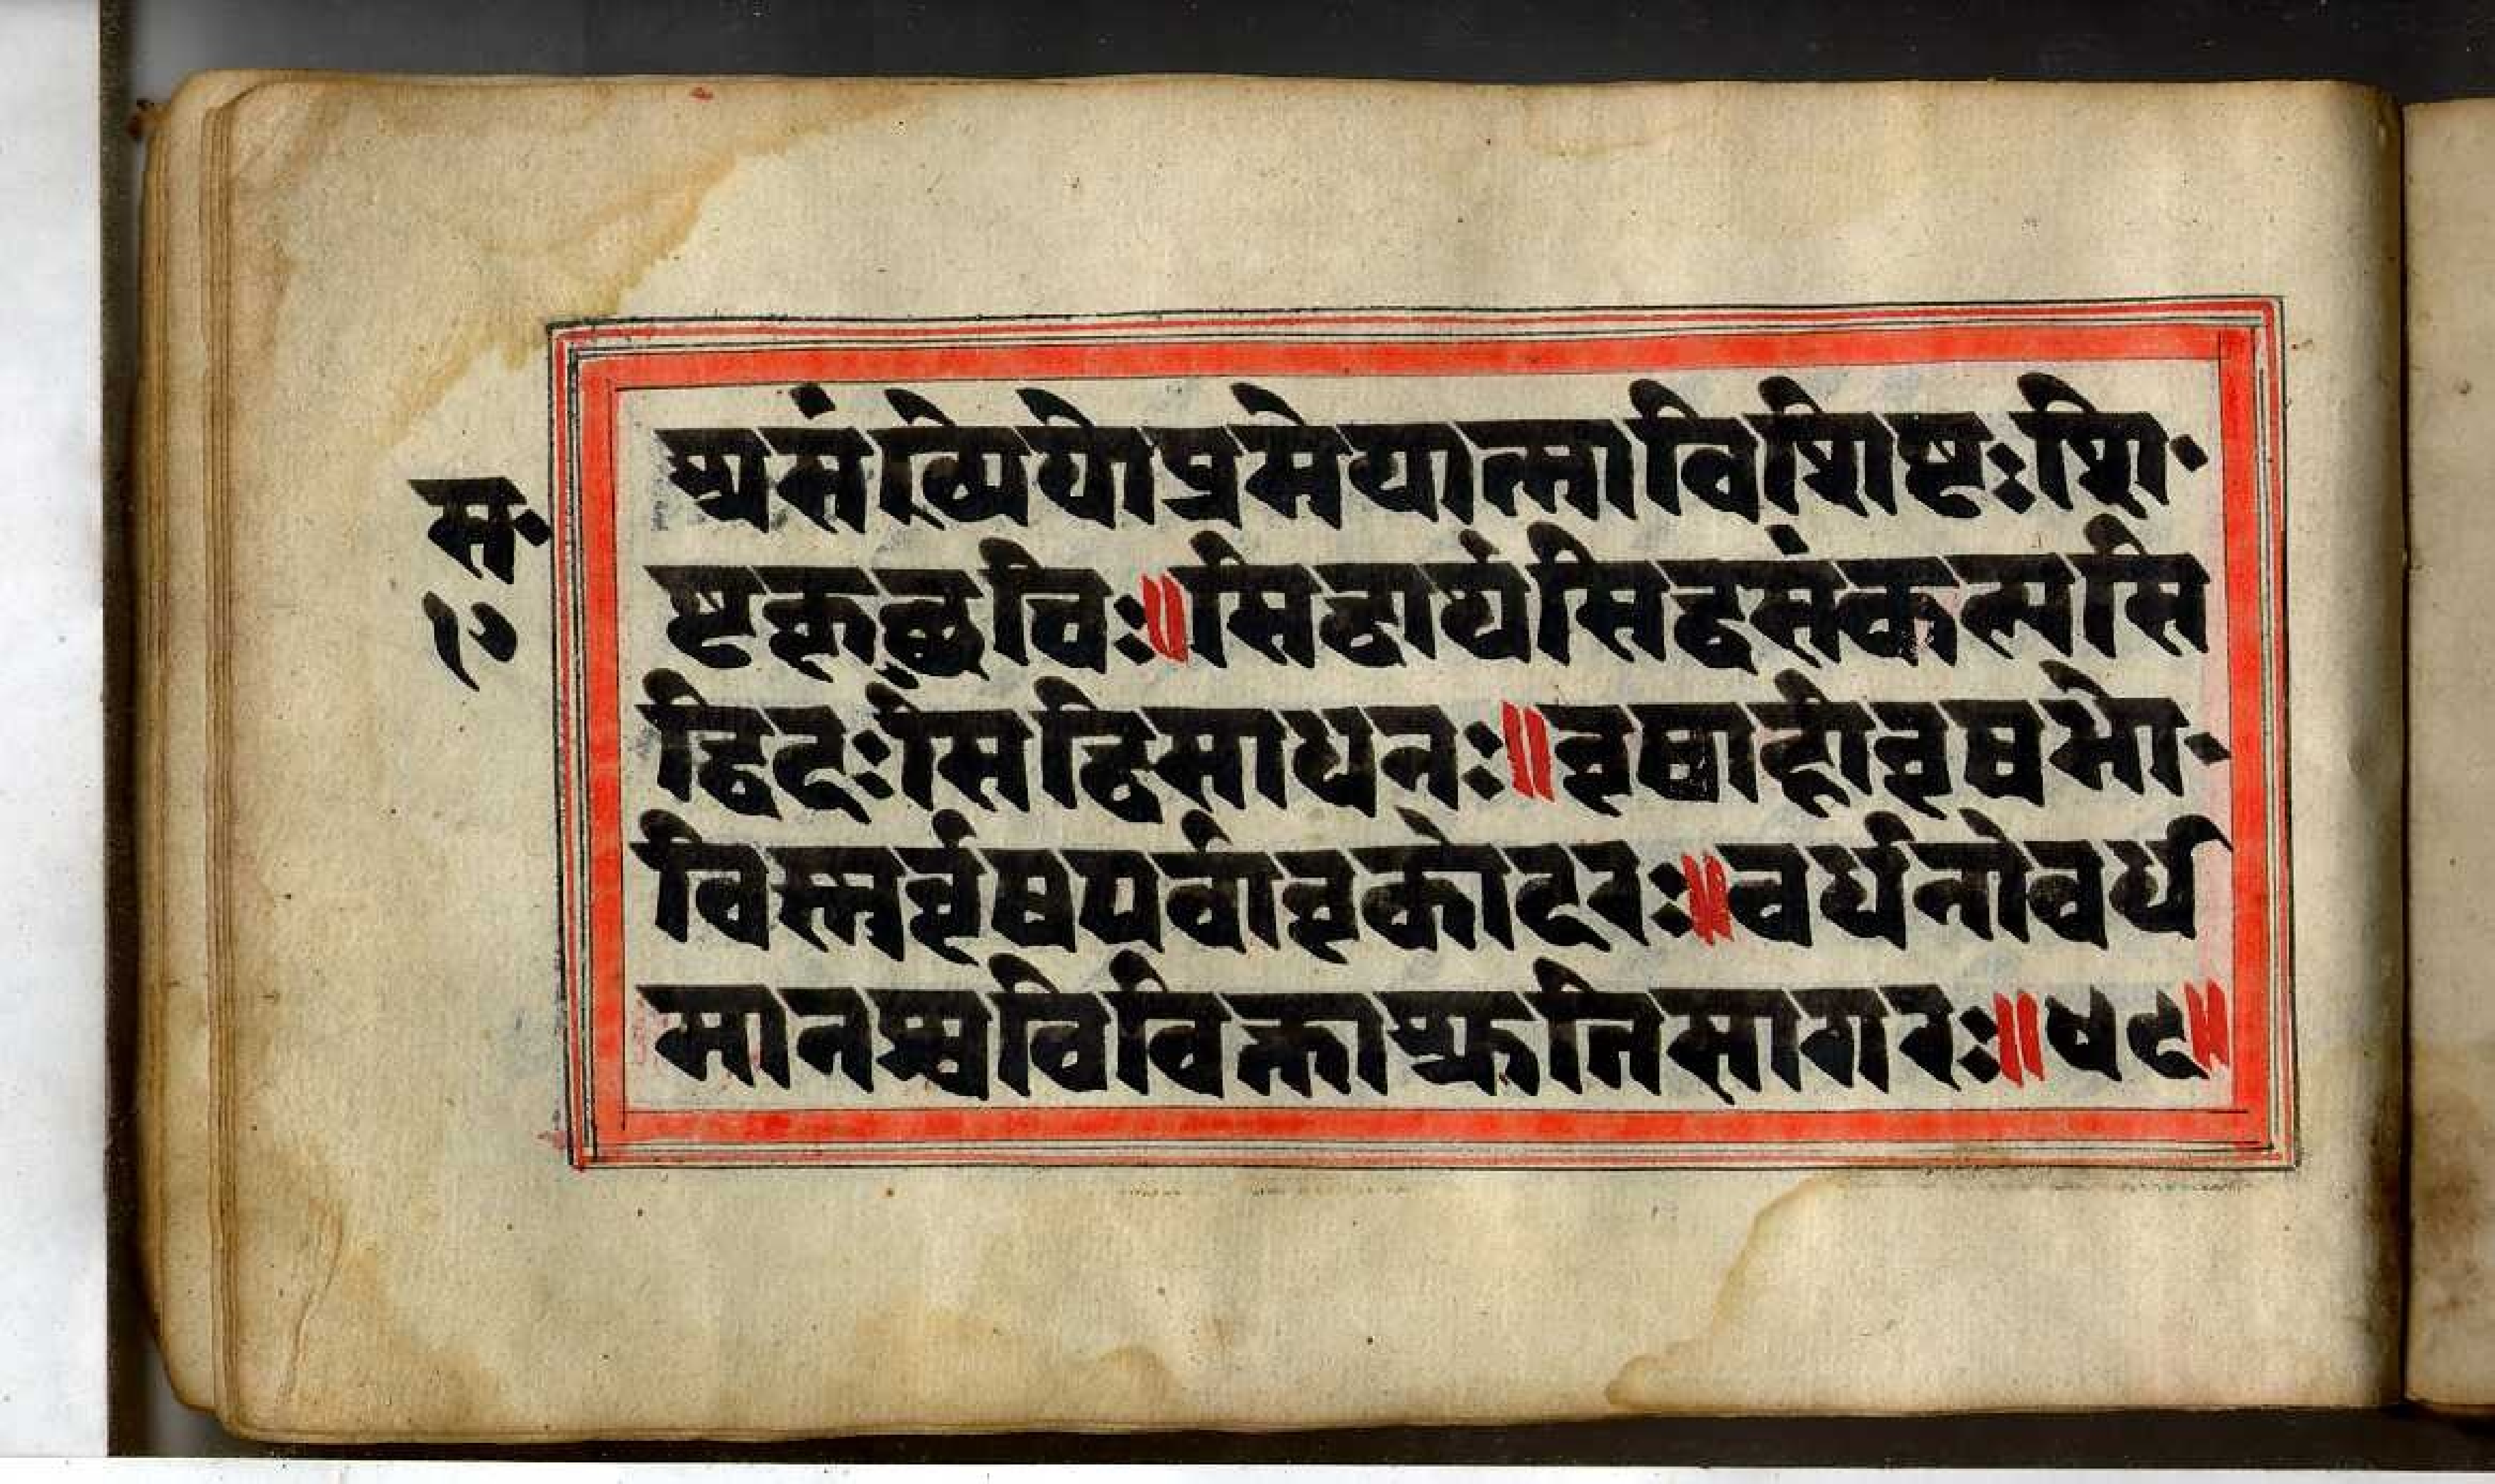 स·
१७
असंख्येयोप्रमेयात्माविशिष्टःशि·
ष्टकृछुचिः॥सिद्धार्थसिद्धसंकल्पसि
द्धिदःसिद्धिसाधनः॥वृषाहीवृषभो·
विस्नुर्वृषपर्वावृकोदरः॥वर्धनोवर्ध
मानश्चविविक्ताश्रुतिसागरः॥